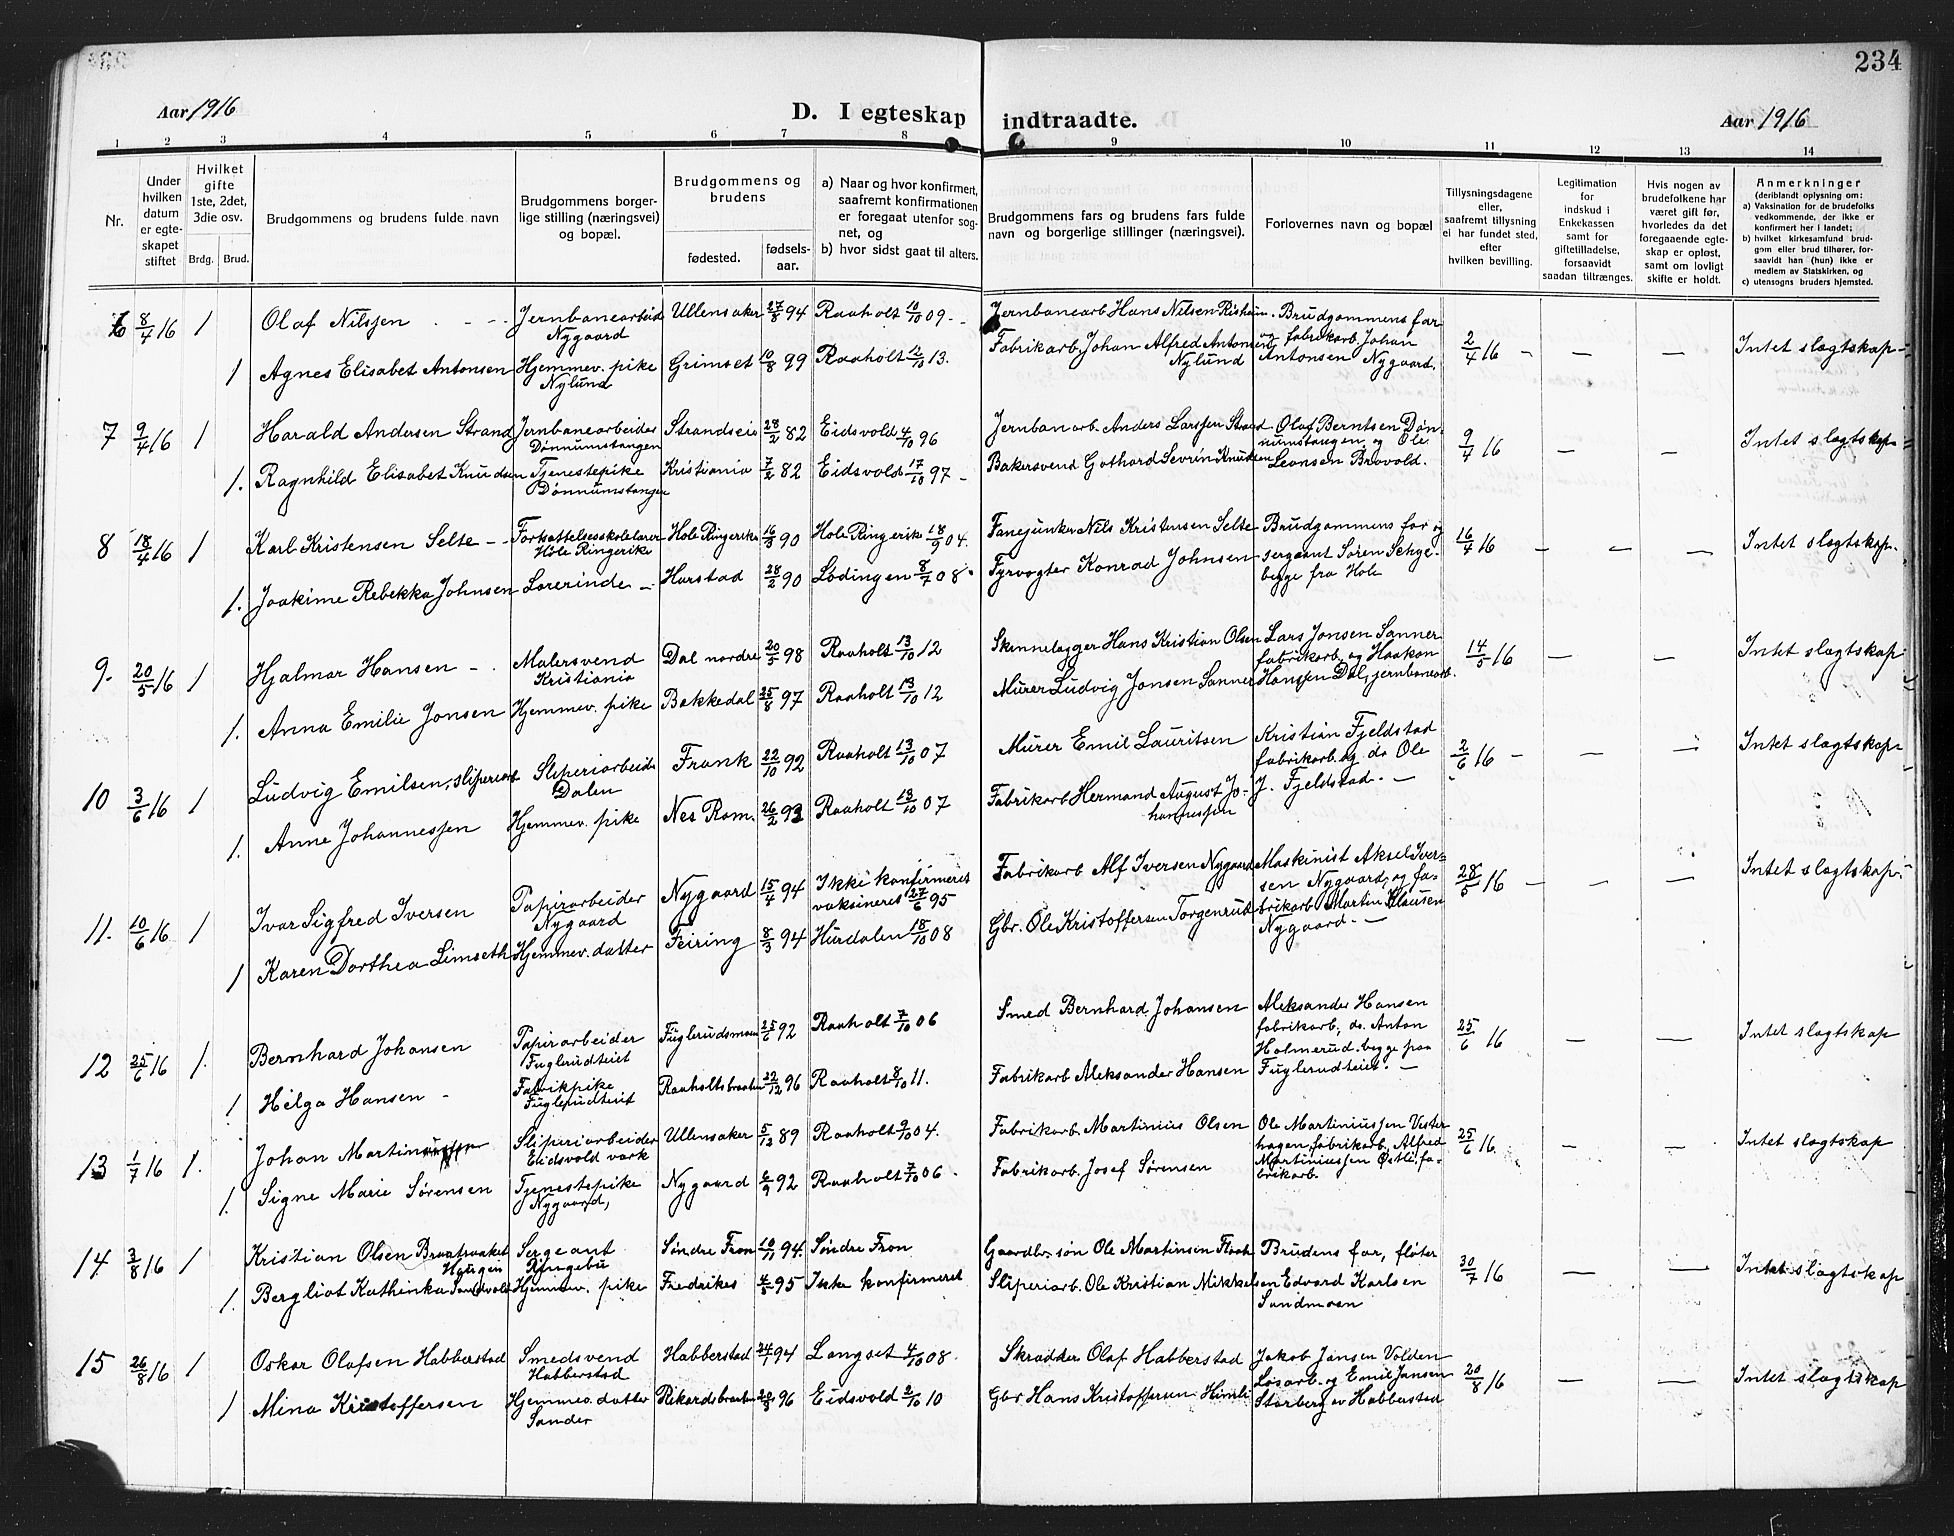 234
Aar 1916
D. I egteskap indtraadte.
Aar 1916
1 2 3 4 5 6 7 8 9 10 11 12 13 14
Nr.
Under hvilken datum er egteskapet stiftet
Hvilket gifte 1ste, 2det, 3die osv.
Brdg. Brud.
Brudgommens og brudens fulde navn
Brudgommens borgerlige stilling (næringsvei) og bopæl.
Brudgommens og brudens
fødested.
fødselsaar.
a) Naar og hvor konfirmert, saafremt konfirmationen er foregaat utenfor sognet, og
b) hvor sidst gaat til alters.
Brudgommens fars og brudens fars fulde navn og borgerlige stillinger (næringsvei).
Forlovernes navn og bopæl
Tillysningsdagene eller, saafremt tillysning ei har fundet sted, efter hvilken bevilling.
Legitimation for indskud i Enkekassen samt for giftetilladelse, forsaavidt saadan tiltrænges.
Hvis nogen av brudefolkene har været gift før, hvorledes da det foregaaende egteskap er opløst, samt om lovligt skifte er holdt.
Anmerkninger
(deriblandt oplysning om:
a) Vaksination for de brudefolks vedkommende, der ikke er konfirmert her i landet;
b) hvilket kirkesamfund brudgom eller brud tilhører, forsaavidt han (hun) ikke er medlem av Statskirken, og
c) utensogns bruders hjemsted.
6 8/4 16 1 Olaf Nilsen Jernbanearbeid Nygaard Ullensaker 27/8 94 Raaholt 10/10 09 Jernbanearb Hans Nilsen Brudgommens far og fabrikarb. Johan Antonsen Nygaard. 2/4 16 - - - Intet slagtskap
1 Agnes Elisabet Antonsen Hjemmev. pike Nylund Grimset 10/8 99 Raaholt 12/10 13. Fabrikarb. Johan Alfred Antonsen Nylund
7 9/4 16 1 Harald Andersen Strand Jernbanearbeider Dønnumstangen Strandseie 28/2 82 Eidsvold 4/10 96 Jernbanarb. Anders Larssen Strand Olaf Berntsen Dønnumstangen og Ole Leonsen Brovold. 9/4 16 - - Intet slagtskap
1. Ragnhild Elisabet Knudsen Tjenestepike Dønnumstangen Kristiania 7/2 82 Eidsvold 17/10 97 Bakersvend Gothard Sevrin Knudsen
8 18/4 16 1 Karl Kristensen Selte Fortsættelsesskolelærer Hole Ringerike Hole Ringerike 16/3 90 Hole Ringerik 18/9 04. Fanejunker Nils Kristensen Selte Brudgommens far og sergeant Søren Selte begge fra Hole 16/4 16 - - - Intet slagtskap.
1. Joakime Rebekka Johnsen Lærerinde Harstad 28/2 90 Lødingen 8/7 08. Fyrvogter Konrad Johnsen
9. 20/5 16 1 Hjalmar Hansen Malersvend Kristiania Dal nordre 20/5 98 Raaholt 13/10 12 Skinnelægger Hans Kristian Olsen Lars Jonsen Sanner fabrikarb. og Haakon Hanssen Dal, jernbanearb. 14/5 16 - - Intet slagtskap
1. Anna Emilie Jonsen Hjemmev. pike Bakkedal 25/8 97 Raaholt 13/10 12 Murer Ludvig Jonsen Sanner
10 3/6 16 1 Ludvig Emilsen, sliperiarb Sliperiarbeide Dalen Frank 22/10 92 Raaholt 13/10 07 Murer Emil Lauritsen Kristian Fjeldstad fabrikarb. og do Ole J. Fjeldstad. 2/6 16 - - - Intet slagtskap
1. Anne Johannessen Hjemmev. pike Nes Rom. 26/2 93 Raaholt 13/10 07 Fabrikarb Hermand August Johannessen
11. 10/6 16 1 Ivar Sigfred Iversen Papirarbeider Nygaard Nygaard 15/4 94 Ikke konfirmeret vaksineret 27/6 95 Fabrikarb Alf Iversen Nygaard Maskinist Aksel Iversen Nygaard, og fabrikarb Martin Klausen Nygaard. 28/5 16 - - - Intet slagtskap.
1 Karen Dorthea Limseth Hjemmev. datter Feiring 8/3 94 Hurdalen 18/10 08 Gbr. Ole Kristoffersen Torgenrud
12 25/6 16 1. Bernhard Johansen Papirarbeider Fuglerudteiet Fuglerudsmoen 25/6 92 Raaholt 7/10 06 Smed Bernhard Johansen Aleksander Hansen fabrikarb, do. Anton Holmerud. begge paa Fuglerudteiet. 25/6 16 - - Intet slagtskap
1 Helga Hansen Fabrikpike Fuglerudteiet Raaholtsbraaten 22/12 96 Raaholt 8/10 11. Fabrikarb Aleksander Hansen
13 1/7 16 1. Johan Martinussen Sliperiarbeider Eidsvold værk Ullensaker 5/12 89 Raaholt 9/10 04. Fabrikarb. Martinius Olsen Ole Martiniussen Vesterhagen, fabrikarb. Alfred Martiniussen Østli. fabrikarb. 25/6 16. - - Intet slagtskap
1. Signe Marie Sørensen Tjenestepike Nygaard, Nygaard 6/9 92 Raaholt 7/10 06. Fabrikarb. Josef Sørensen
14 3/8 16 1 Kristian Olsen Haugen Sergeant Ringebu Søndre Fron 10/11 94. Søndre Fron Gaardbr. søn Ole Martinsen Brudens far, fløter Edvard Karlsen Sandmoen 30/7 16 - - Intet slagtskap
1. Bergliot Kathinka Sandvold Hjemmev. pike Fredrikss 4/5 95 Ikke konfirmeret Sliperiarb. Ole Kristian Mikkelsen
15 26/8 16 1 Oskar Olafsen Habberstad Smedsvend Habberstad Habberstad 24/1 94 Langset 4/10 08. Skrædder Olaf Habberstad Jakob Jansen Volden Løsarb. og Emil Jansen Storberg av Habberstad 20/8 16 - - Intet slagtskap
1 Mina Kristoffersen Hjemmev. datter Sander Rikardsbraaten 28/8 96 Eidsvold 2/10 10 Gbr Hans Kristoffersen Himli